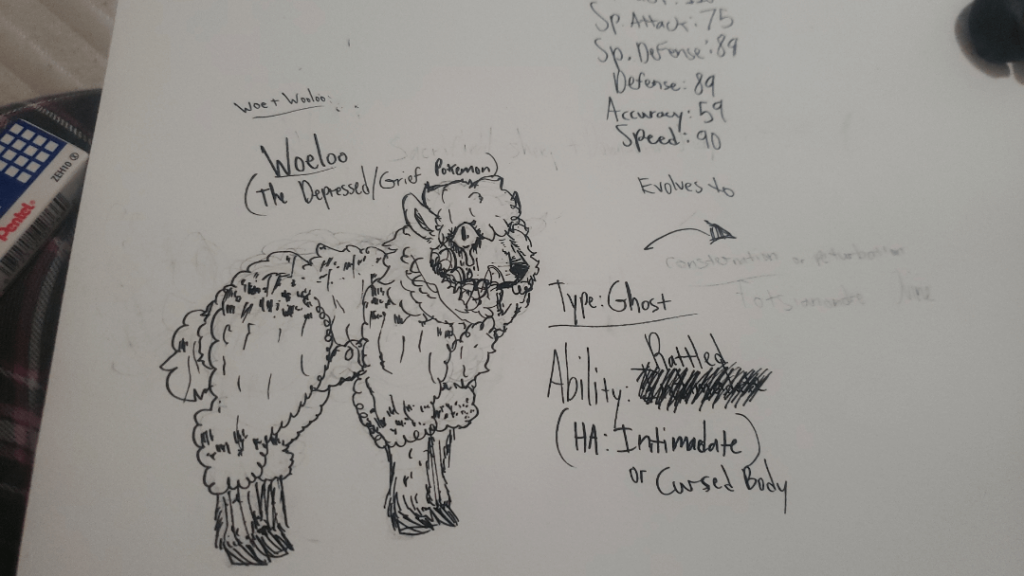 Sp Attack: 75
Sp. Defense: 89
Defense: 89
Accuracy: 59
Speed: 90
Evolves to
consternation or
Woe + Wooloo
Woeloo
(The Depressed/Grief Pokemon)
Type: Ghost
Ability: Rattled
(HA: Intimadate)
or Cursed Body
Pentel
ZEH10